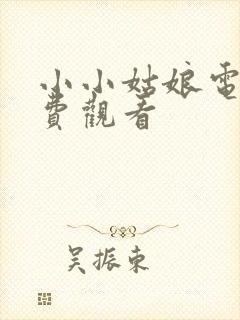 小小姑娘電
費觀看
吴振東